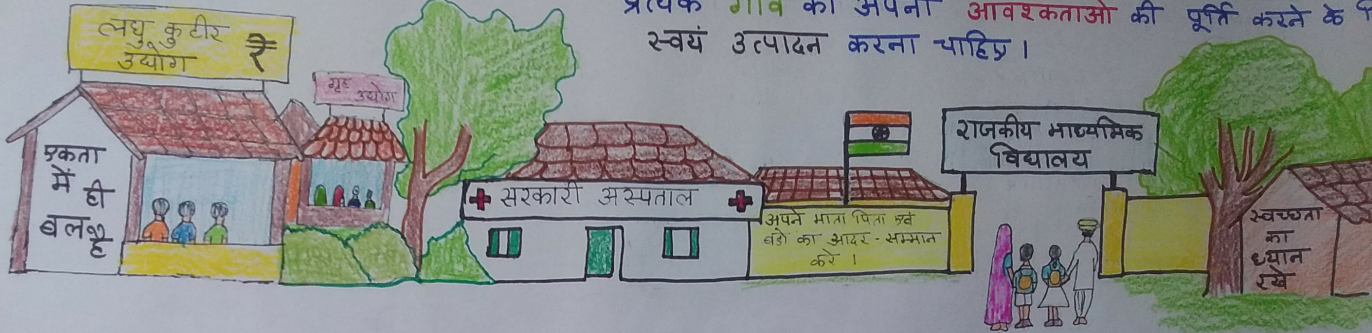 प्रत्येक गांव को अपनी आवश्कताओ की पूर्ति करने के
स्वयं उत्पादन करना चाहिए।
लघु कुटीर
उद्योग ₹
गृह उद्योग
एकता
में ही
बल है
सरकारी अस्पताल
अपने माता पिता एवं
बड़ो का आदर-सम्मान
करे।
राजकीय माध्यमिक
विद्यालय
स्वच्छता
का
ध्यान
रखे